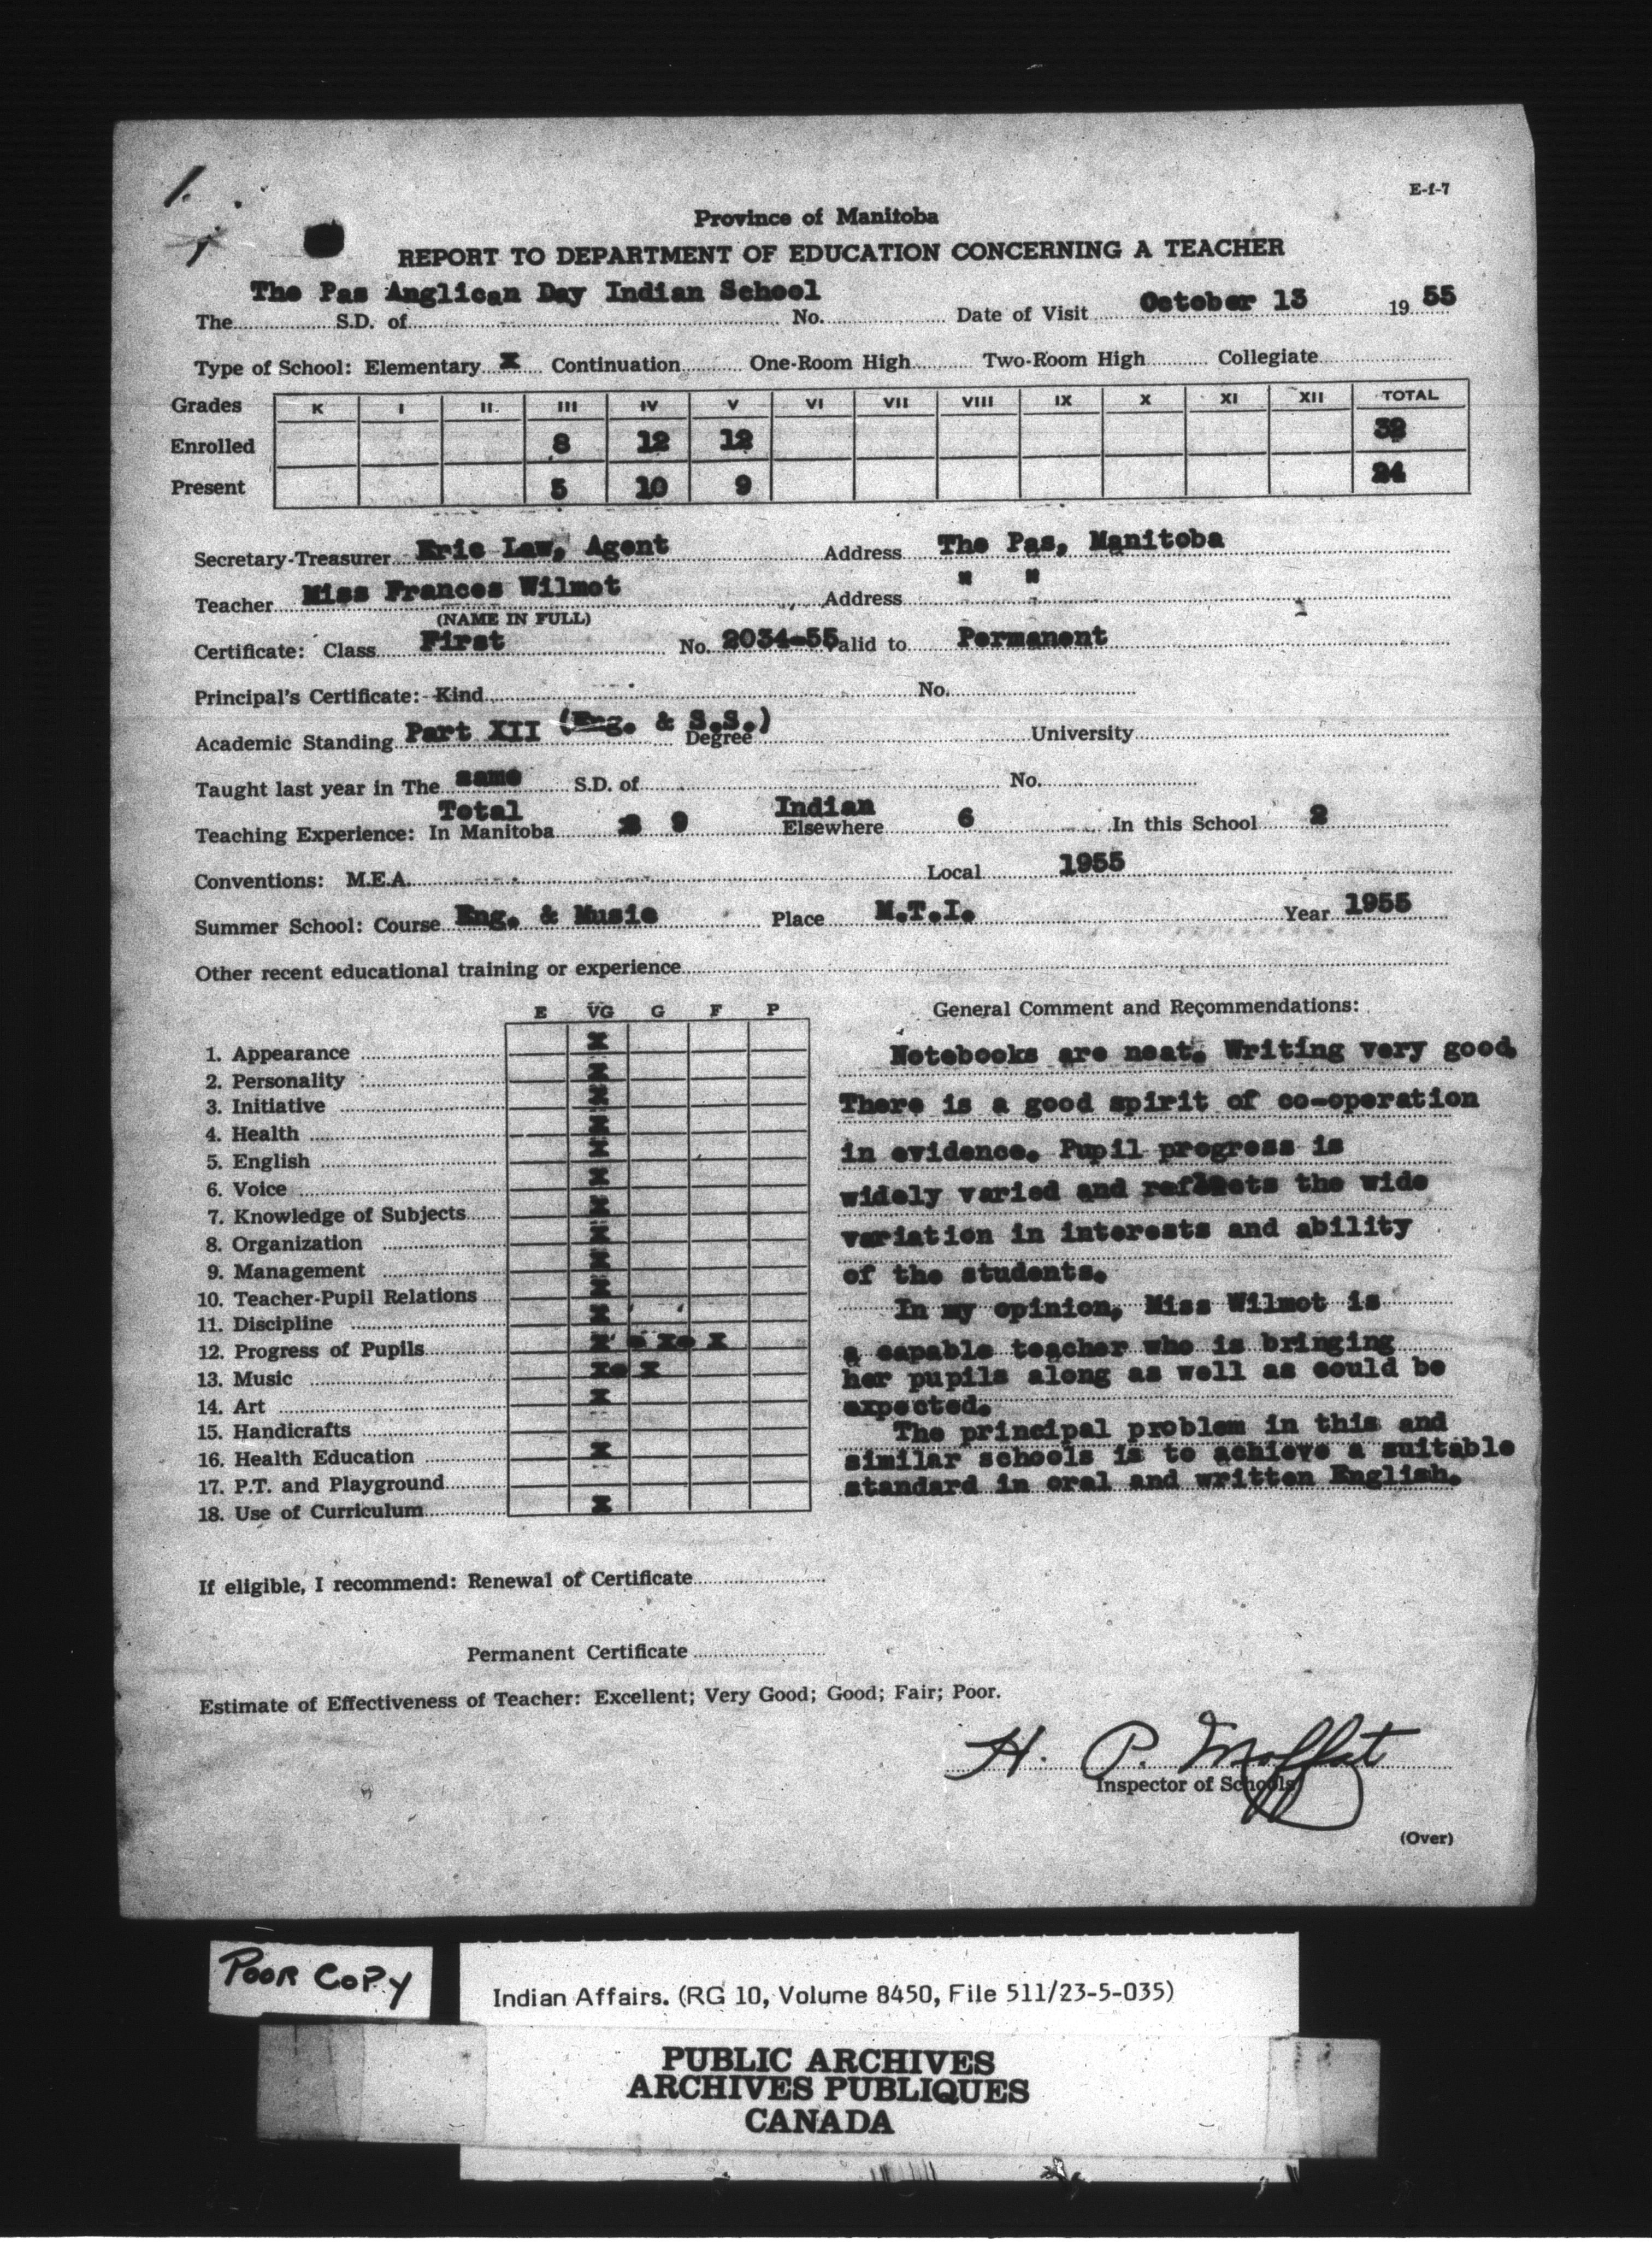 1.
E-f-7
Province of Manitoba
REPORT TO DEPARTMENT OF EDUCATION CONCERNING A TEACHER
The Pas Anglican Day Indian School
The S.D. of No. Date of Visit October 13 19 55
Type of School: Elementary X Continuation One-Room High Two-Room High Collegiate
Grades K I II III IV V VI VII VIII IX X XI XII TOTAL
Enrolled 8 12 12 32
Present 5 10 9 24
Secretary-Treasurer Eric Law, Agent Address The Pas, Manitoba
Teacher Miss Frances Wilmot Address " "
(NAME IN FULL)
Certificate: Class First No. 2034-55 alid to Permanent
Principal's Certificate: Kind No.
Academic Standing Part XII (Eng. & S.S.) Degree University
Taught last year in The same S.D. of No.
Total Indian
Teaching Experience: In Manitoba 9 Elsewhere 6 In this School 2
Conventions: M.E.A. Local 1955
Summer School: Course Eng. & Music Place M.T.I. Year 1955
Other recent educational training or experience
E VG G F P
1. Appearance X
2. Personality X
3. Initiative X
4. Health X
5. English X
6. Voice X
7. Knowledge of Subjects X
8. Organization X
9. Management X
10. Teacher-Pupil Relations X
11. Discipline X
12. Progress of Pupils X X X
13. Music X X
14. Art X
15. Handicrafts
16. Health Education X
17. P.T. and Playground
18. Use of Curriculum X
General Comment and Recommendations:
Notebooks are neat. Writing very good.
There is a good spirit of co-operation
in evidence. Pupil progress is
widely varied and reflects the wide
variation in interests and ability
of the students.
In my opinion, Miss Wilmot is
a capable teacher who is bringing
her pupils along as well as could be
expected.
The principal problem in this and
similar schools is to achieve a suitable
standard in oral and written English.
If eligible, I recommend: Renewal of Certificate
Permanent Certificate
Estimate of Effectiveness of Teacher: Excellent; Very Good; Good; Fair; Poor.
H. P. Moffat
Inspector of Schools
(Over)
POOR COPY
Indian Affairs. (RG 10, Volume 8450, File 511/23-5-035)
PUBLIC ARCHIVES
ARCHIVES PUBLIQUES
CANADA